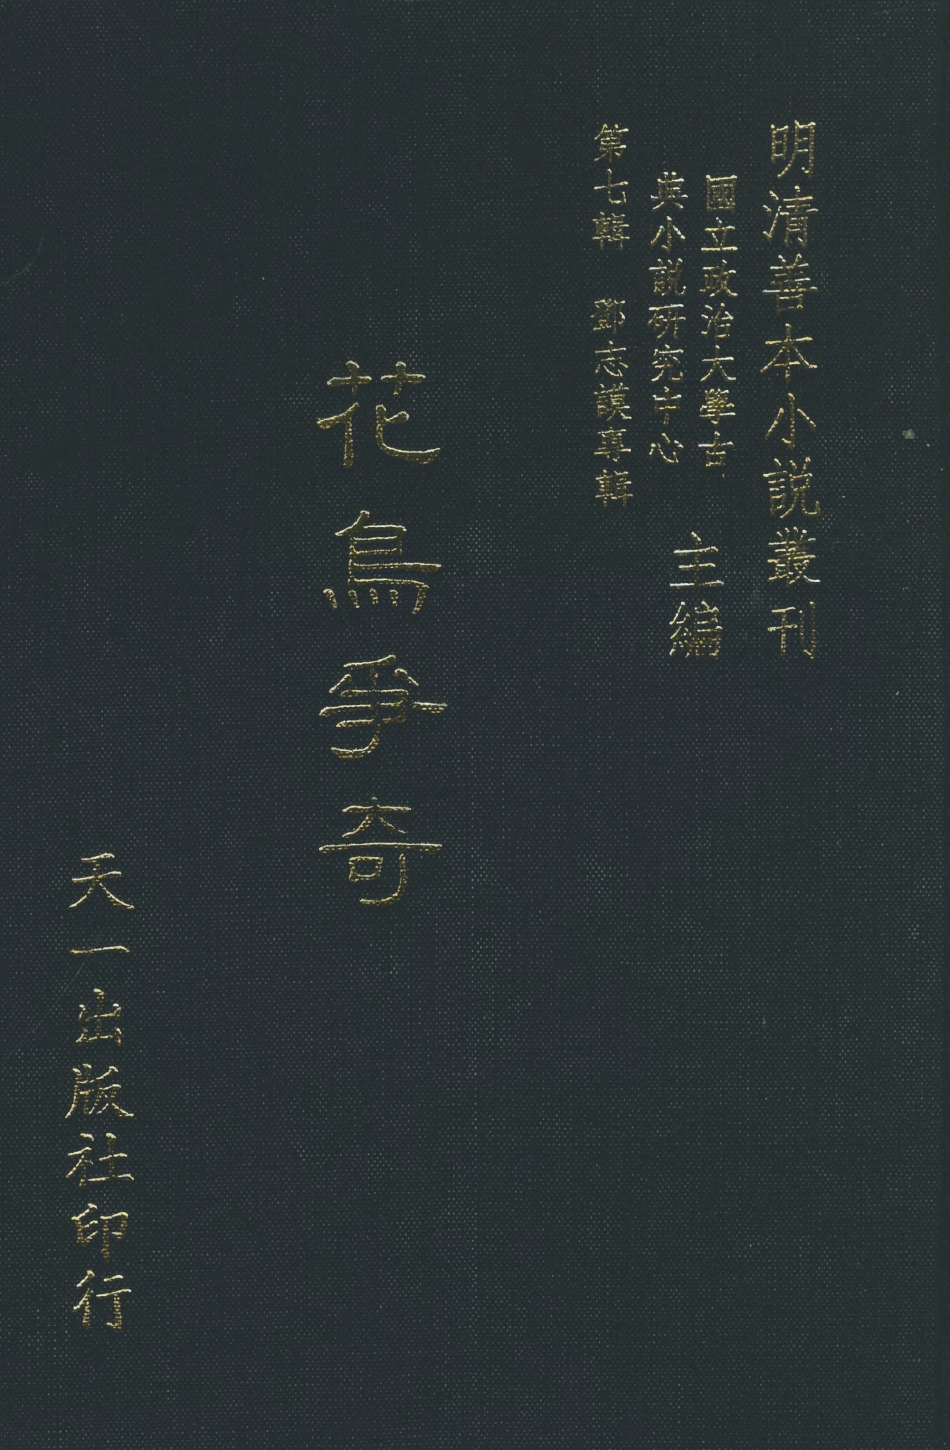 明清善本小説叢刊
國立政治大學古
典小説研究中心
主編
第七輯　鄧志謨專輯
花鳥爭奇
天一出版社印行